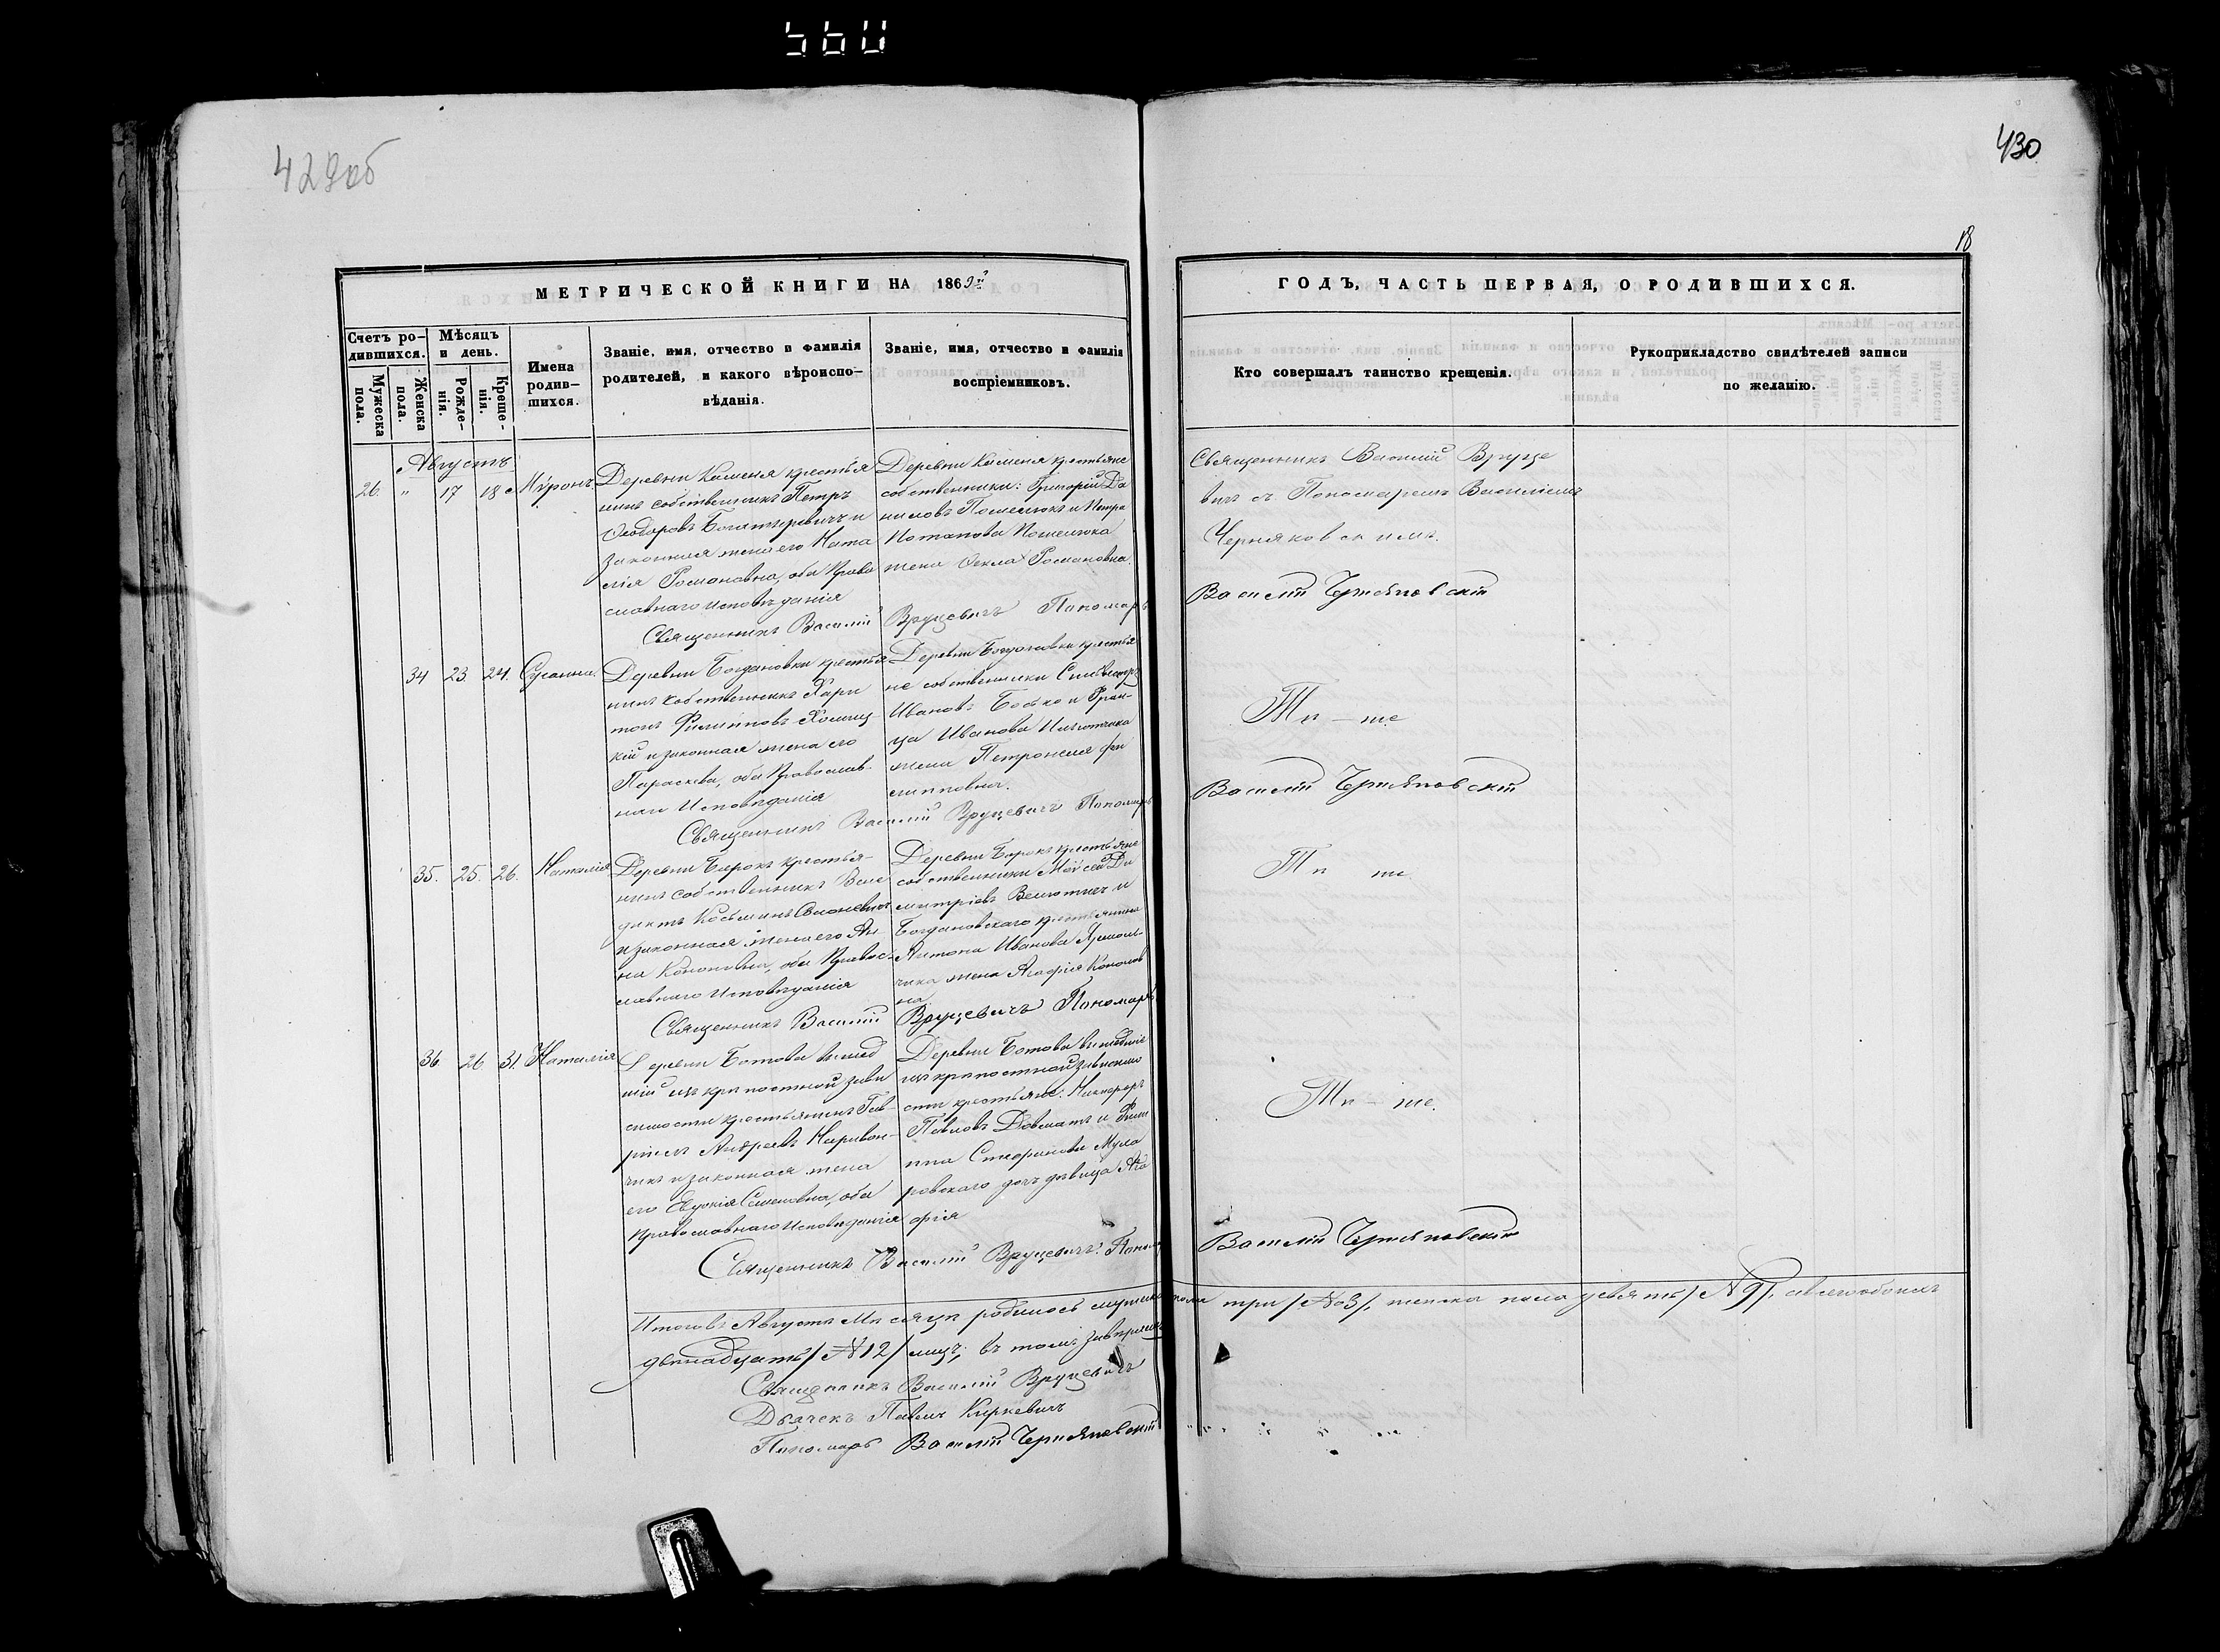 560
429об
430
18
МЕТРИЧЕСКОЙ КНИГИ НА 1869й
ГОДЪ, ЧАСТЬ ПЕРВАЯ, О РОДИВШИХСЯ.
Счетъ ро-
дившихся.
Мужеска
пола.
Женска
пола.
Мѣсяцъ
и день.
Рожде-
нія.
Креще-
нія.
Имена
родив-
шихся.
Званіе, имя, отчество и фамилія
родителей, и какого вѣроиспо-
вѣданія.
Званіе, имя, отчество и фамилія
воспріемниковъ.
Кто совершалъ таинство крещенія.
Рукоприкладство свидѣтелей записи
по желанію.
Августъ
26. " 17 18 Мѵронъ.
Деревни Каменя крестья
нинъ собственникъ Петръ
Ѳеодоровъ Богатыревичъ и
законная жена его Ната
лія Романовна, оба Право
славнаго исповѣданія
Деревни Каменя крестьяне
собственники: Григорій Да
ниловъ и Петра
Потапова
жена Ѳекла Романовна.
Священникъ Василій Вруце
вичъ съ Пономаремъ Василіемъ
Черняковскимъ.
Священникъ Василій Вруцевичъ Пономарь
Василій Черняковскій
34 23 24. Сусанна.
Деревни Богдановки крестья
нинъ собственникъ Хари
тонъ Филипповъ
кій и законная жена его
Параскева, оба Православ-
наго Исповѣданія
Деревни Богдановки крестья
не собственники Сильвестръ
Ивановъ Бобко и Фран-
ца Иванова
жена Петронеля Фи
липповна.
Тѣ-же
Священникъ Василій Вруцевичъ Пономарь
Василій Черняковскій
35. 25. 26. Наталія
Деревни Борокъ крестья-
нинъ собственникъ Вене
диктъ Косьминъ
и законная жена его Ан-
на Кононовна, оба Правос-
лавнаго Исповѣданія
Деревни Борокъ крестьяне
собственники Моѵсей Ди
митріевъ и
Богдановскаго крестьянина
Антона Иванова Ярмоль-
чика жена Агафія Кононов
на
Тѣ же
Священникъ Василій Вруцевичъ Пономарь
36. 26 31. Наталія
Деревни Ботова вышед
шій изъ крѣпостной зави
симости крестьянинъ Гав-
ріилъ Андреевъ Харитон-
чикъ и законная жена
его Евдокія Семеновна, оба
Православнаго Исповѣданія
Деревни Ботова вышедшіе
изъ крѣпостной зависимо
сти крестьяне: Никифоръ
Павловъ Довнатъ и Фили
ппа Стефанова
ровскаго дочь дѣвица Ага
фія
Тѣ-же.
Священникъ Василій Вруцевичъ. Пономарь
Василій Черняковскій
Итого въ Августѣ Мѣсяцѣ родилось мужеска пола три /№3/, женска пола девять /№9/, а всего обоихъ
двѣнадцать /№12/ лицъ; въ томъ
Священникъ Василій Вруцевичъ
Дьячекъ Павелъ Киркевичъ
Пономарь Василій Черняковскій